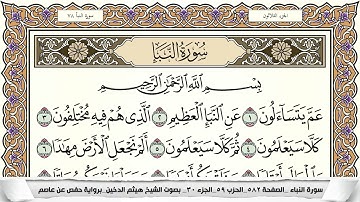 الجزء الثلاثون
سورة النبأ ٧٨
سُورَةُ النَّبَإِ
بِسْمِ اللَّهِ الرَّحْمَٰنِ الرَّحِيمِ
عَمَّ يَتَسَاءَلُونَ ١ عَنِ النَّبَإِ الْعَظِيمِ ٢ الَّذِي هُمْ فِيهِ مُخْتَلِفُونَ ٣
كَلَّا سَيَعْلَمُونَ ٤ ثُمَّ كَلَّا سَيَعْلَمُونَ ٥ أَلَمْ نَجْعَلِ الْأَرْضَ مِهَادًا ٦
سورة النباء _ الصفحة ٥٨٢_ الحزب ٥٩ _ الجزء ٣٠ _ بصوت الشيخ هيثم الدخين_ برواية حفص عن عاصم